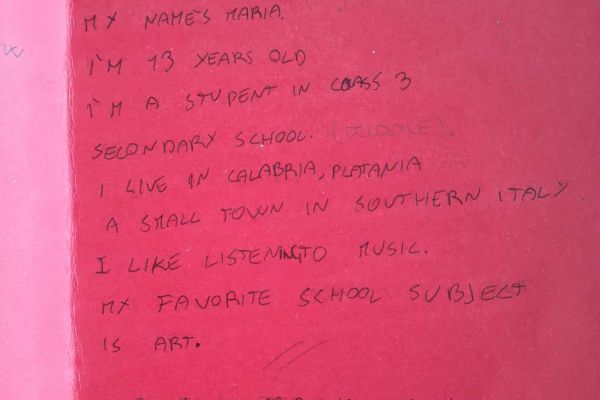 MY NAME'S MARIA.
I'M 13 YEARS OLD
I'M A STUDENT IN CLASS 3
SECONDARY SCHOOL. (MIDDLE).
I LIVE IN CALABRIA, PLATANIA
A SMALL TOWN IN SOUTHERN ITALY
I LIKE LISTENING TO MUSIC.
MY FAVORITE SCHOOL SUBJECT
IS ART.